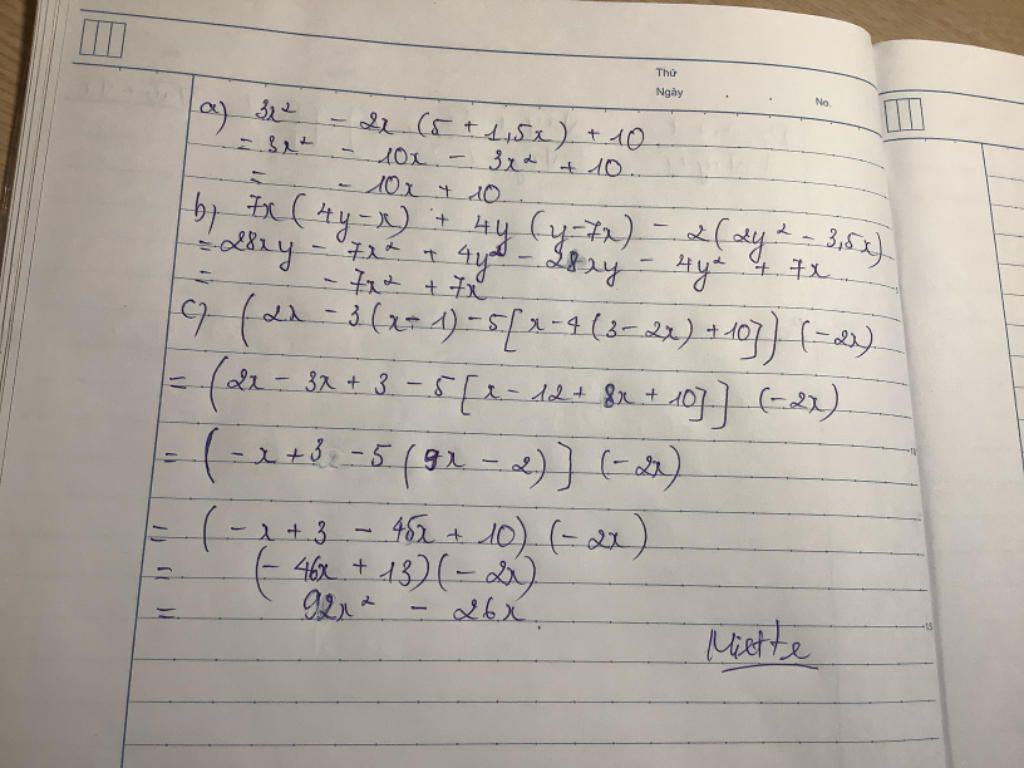 Thứ
Ngày . . No.
a) 3x² - 2x (5 + 1,5x) + 10
= 3x² - 10x - 3x² + 10
= - 10x + 10
b) 7x (4y - x) + 4y (y - 7x) - 2 (2y² - 3,5x)
= 28xy - 7x² + 4y² - 28xy - 4y² + 7x
= - 7x² + 7x
c) (2x - 3 (x - 1) - 5 [x - 4 (3 - 2x) + 10]) (-2x)
= (2x - 3x + 3 - 5 [x - 12 + 8x + 10]] (-2x)
= (-x + 3 - 5 (9x - 2)] (-2x)
= (-x + 3 - 45x + 10) (-2x)
= (- 46x + 13) (-2x)
= 92x² - 26x
Miette